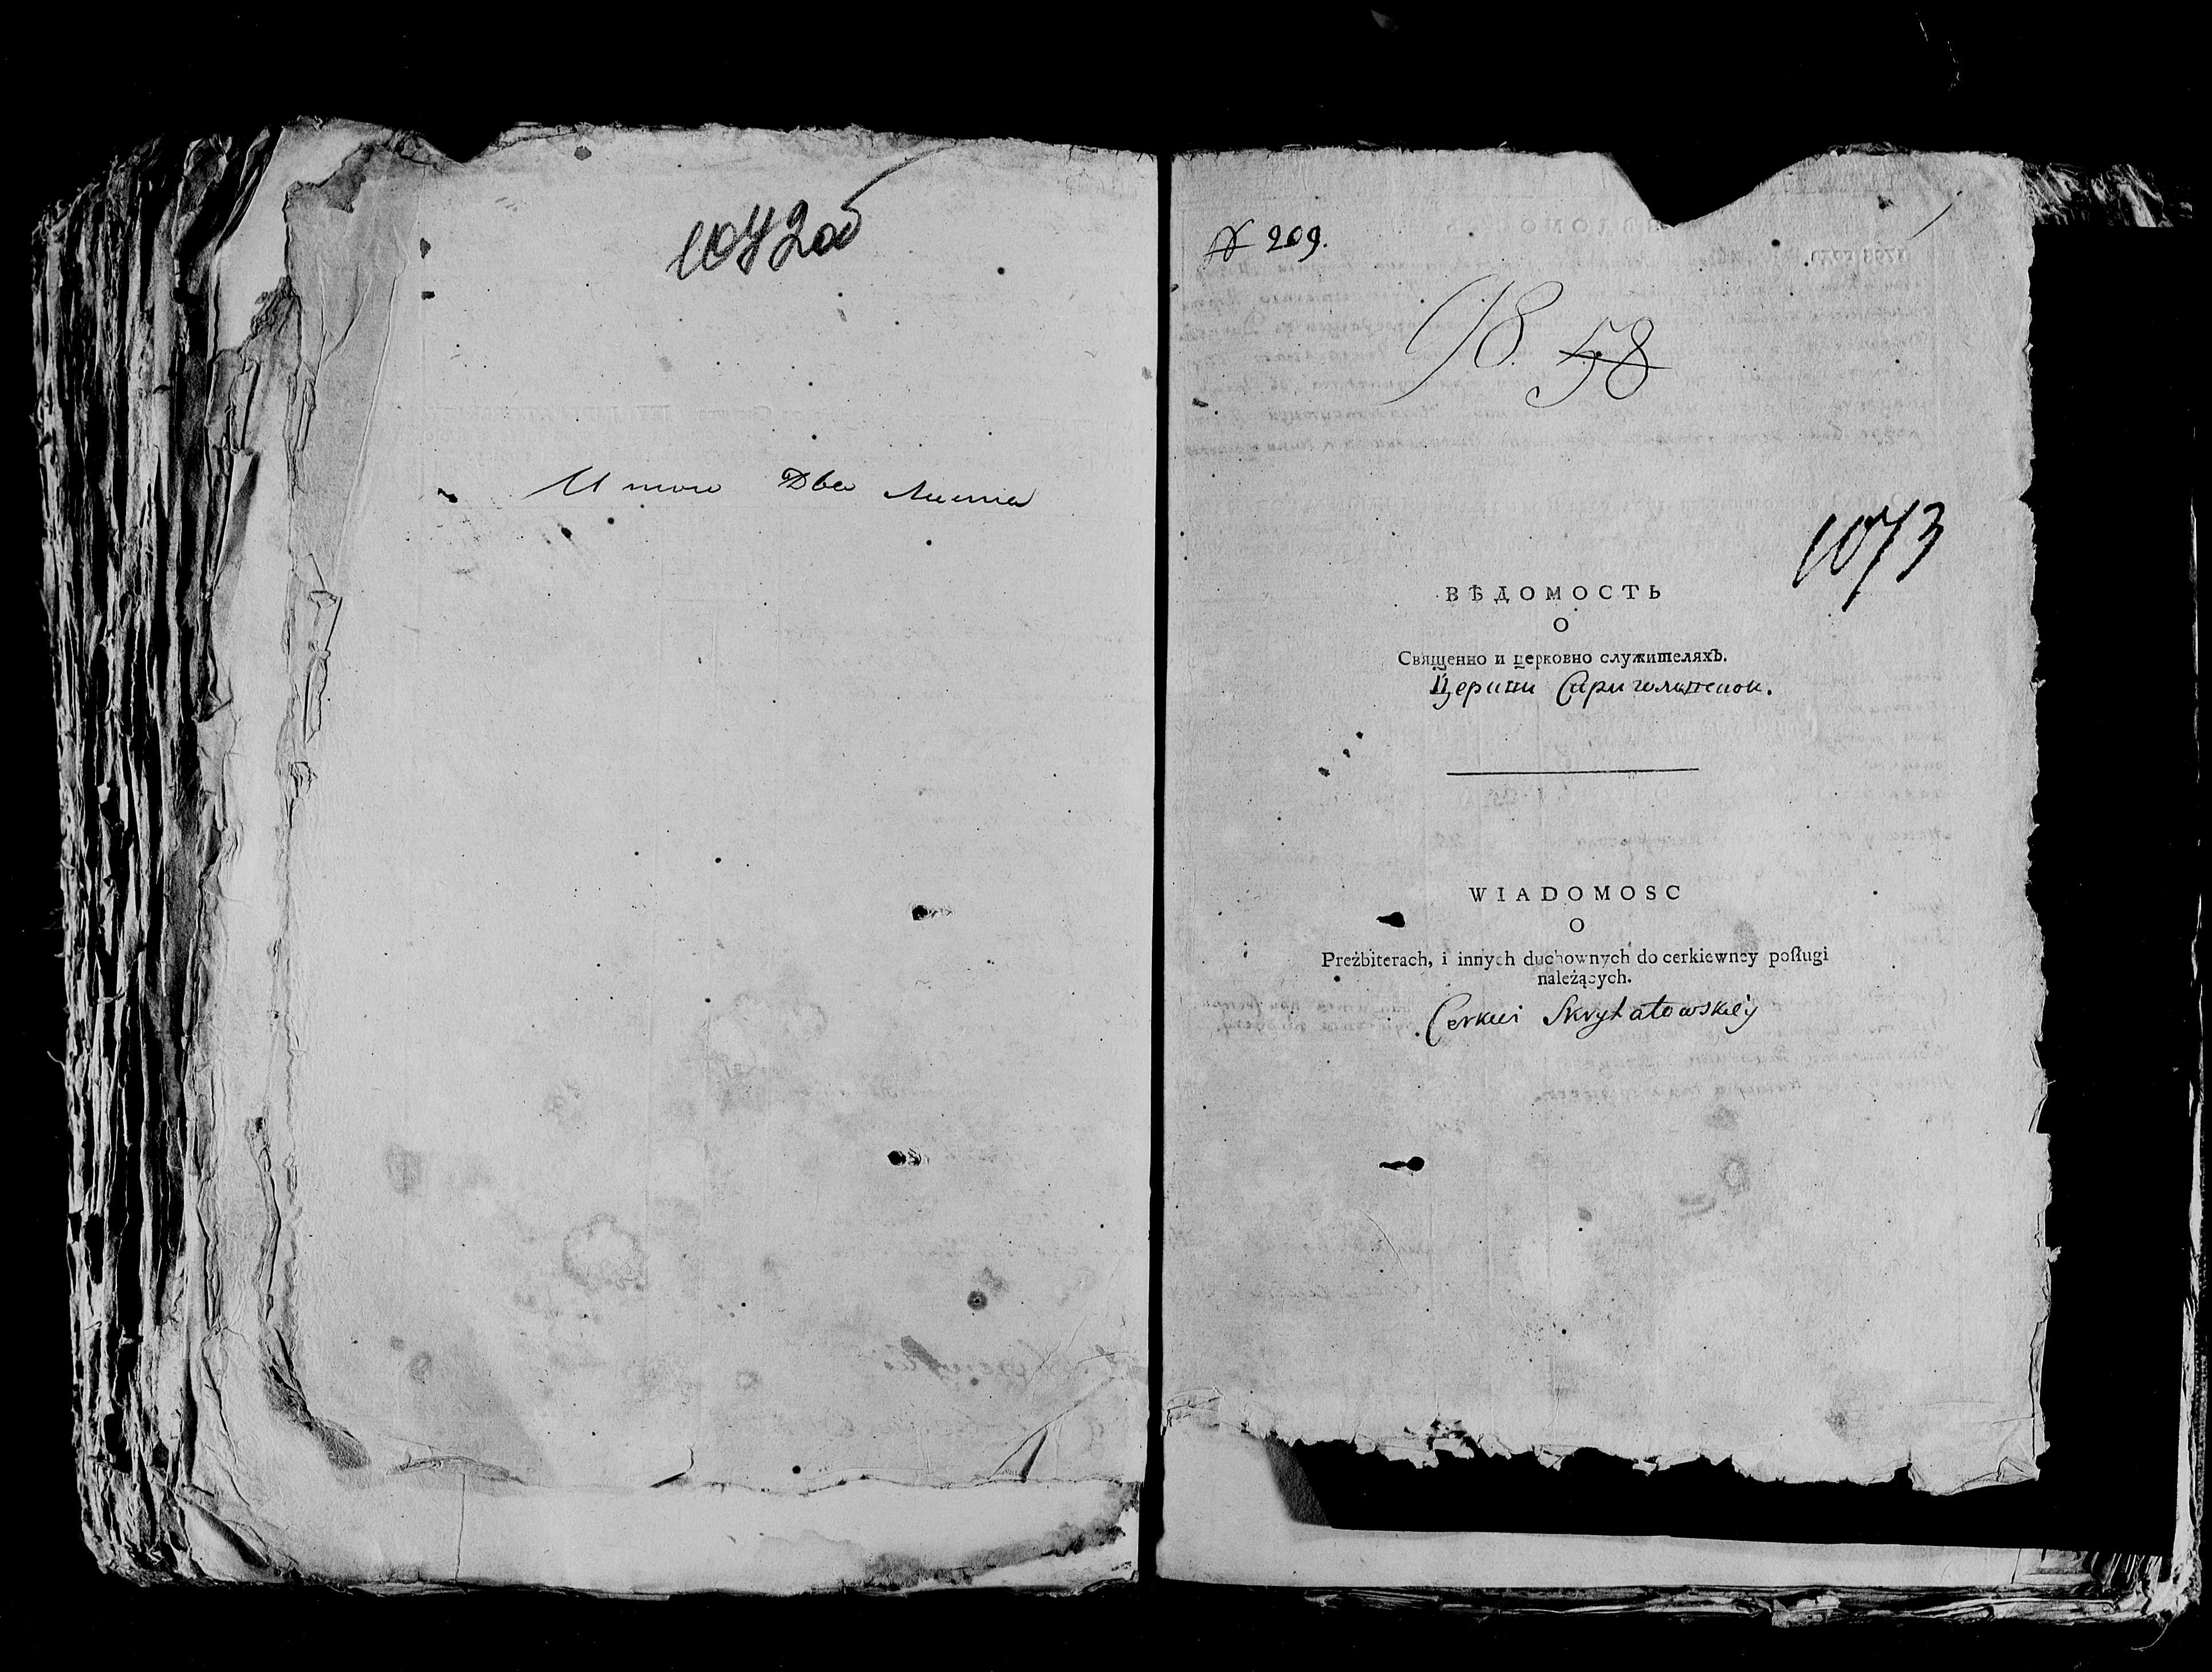 1072об
Итого Два листа
№ 209.
98. 58
1073
ВѢДОМОСТЬ
О
Священно и церковно служителяхъ.
Церкви
WIADOMOSC
O
Preżbiterach, i innych duchownych do cerkiewney poſługi
należących.
Cerkwi